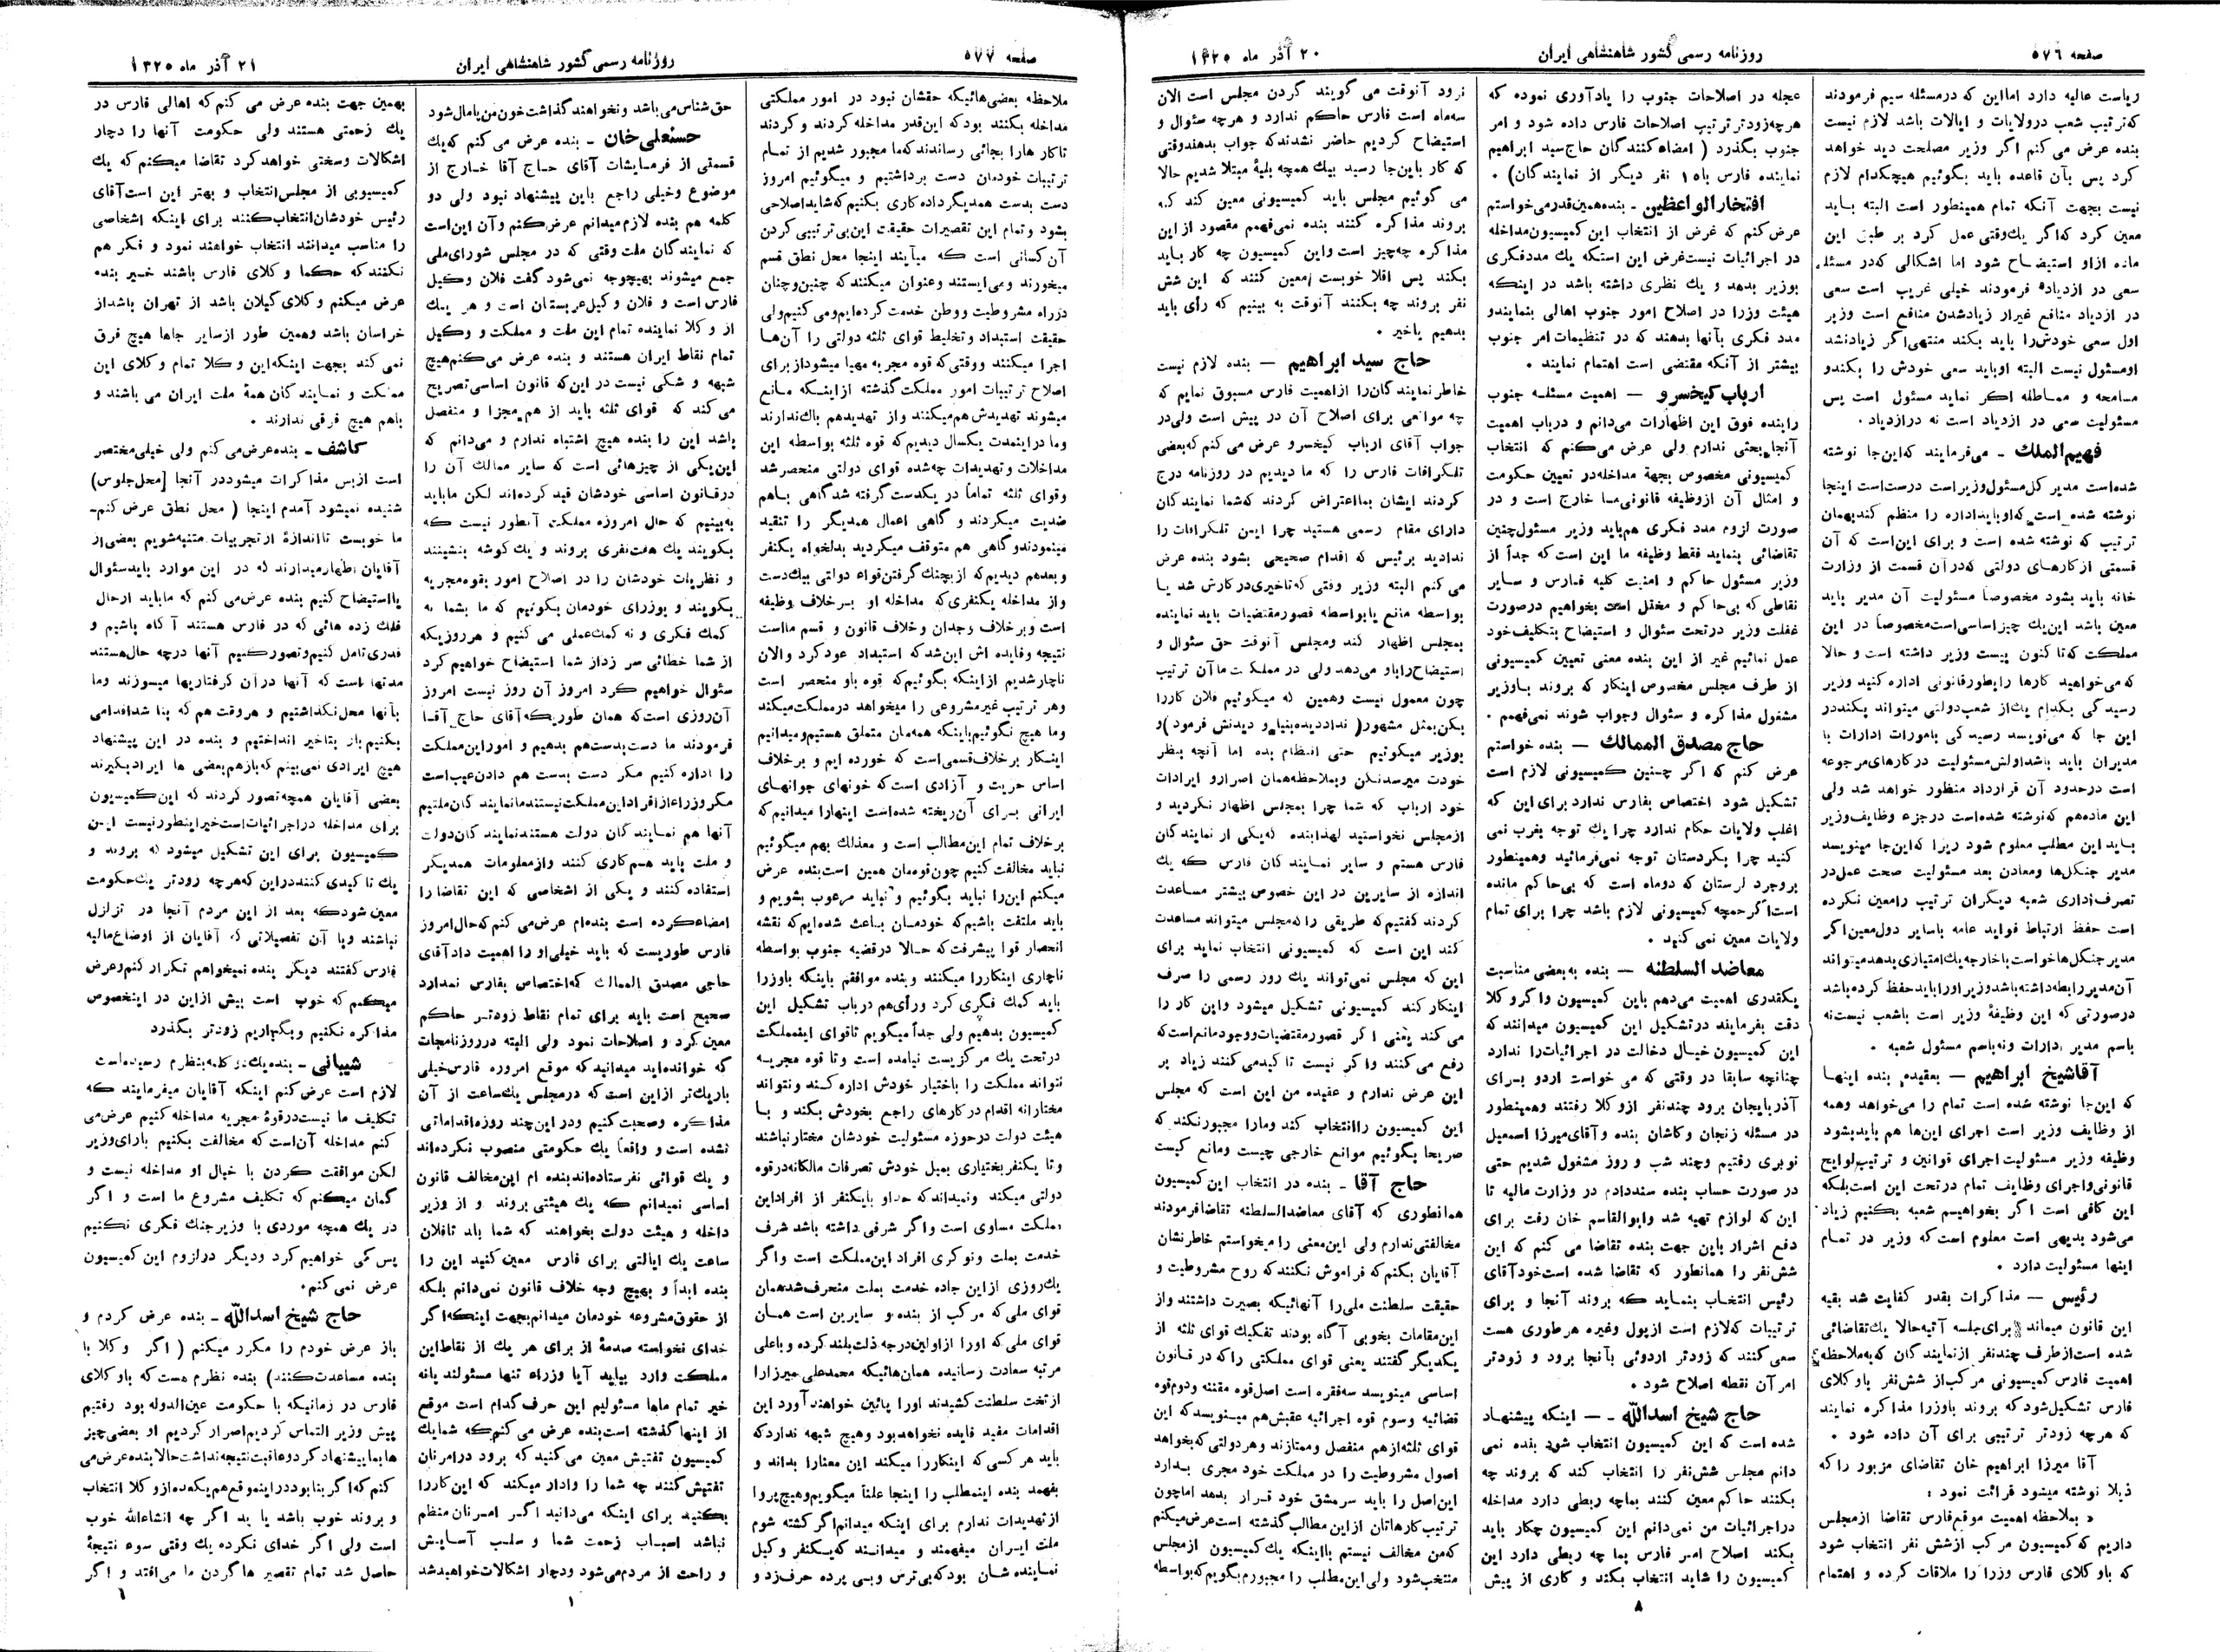 صفحه ۵۷۶
روزنامه رسمی کشور شاهنشاهی ایران
۲۰ آذر ماه ۱۳۲۵
ریاست عالیه دارد اما این که در مسئله سیم فرمودند
که ترتیب شعب در ولایات و ایالات باشد لازم نیست
بنده عرض می کنم اگر وزیر مصلحت دید خواهد
کرد پس بآن قاعده باید بگوئیم هیچکدام لازم
نیست بجهت آنکه تمام همینطور است البته باید
معین کرد که اگر یك وقتی عمل کرد بر طبق این
ماده ازاو استیضاح شود اما اشکالی که در مسئله
سعی در ازدیاد فرمودند خیلی غریب است سعی
در ازدیاد منافع غیراز زیادشدن منافع است وزیر
اول سعی خودش را باید بکند منتهی اگر زیاد نشد
او مسئول نیست البته اوباید سعی خودش را بکند و
مسامحه و مماطله اکر نماید مسئول است پس
مسئولیت سعی در ازدیاد است نه درازدیاد .
فهیم الملك ـ می فرمایند که این جا نوشته
شده است مدیر کل مسئول وزیر است درست است اینجا
نوشته شده است که او باید اداره را منظم کند بهمان
ترتیب که نوشته شده است و برای این است که آن
قسمتی از کارهای دولتی که در آن قسمت از وزارت
خانه باید بشود مخصوصاً مسئولیت آن مدیر باید
معین باشد این یك چیز اساسی است مخصوصاً در این
مملکت که تا کنون پیست وزیر داشته است و حالا
که می خواهید کارها را بطور قانونی اداره کنید وزیر
رسیدگی بکدام یك از شعب دولتی میتواند بکند در
این جا که می نویسد رسید کی بامورات ادارات با
مدیران باید باشد اولش مسئولیت در کارهای مرجوعه
است در حدود آن قرارداد منظور خواهد شد ولی
این ماده هم که نوشته شده است در جزء وظایف وزیر
باید این مطلب معلوم شود زیرا که این جا مینویسد
مدیر جنگل ها و معادن بعد مسئولیت صحت عمل در
تصرف اداری شعبه دیگران ترتیب را معین نکرده
است حفظ ارتباط فواید عامه باسایر دول معین اگر
مدیر جنگل ها خواست با خارجه یك امتیازی بدهد میتواند
آن مدیر رابطه داشته باشد وزیر اورا باید حفظ کرده باشد
در صورتی که این وظیفهٔ وزیر است باشعب نیست نه
باسم مدیر ادارات و نه باسم مسئول شعبه .
آقا شیخ ابراهیم ـ بعقیده بنده اینها
که این جا نوشته شده است تمام را می خواهد و همه
از وظایف وزیر است اجرای این ها هم باید بشود
وظیفه وزیر مسئولیت اجرای قوانین و ترتیب لوایح
قانونی و اجرای وظایف تمام در تحت این است بلکه
این کافی است اگر بخواهیم شعبه بکنیم زیاد
می شود بدیهی است معلوم است که وزیر در تمام
اینها مسئولیت دارد .
رئیس ـ مذاکرات بقدر کفایت شد بقیه
این قانون میماند برای جلسه آتیه حالا یك تقاضائی
شده است از طرف چند نفر از نمایندگان که به ملاحظه
اهمیت فارس کمیسیونی مرکب از شش نفر باوکلای
فارس تشکیل شود که بروند باوزرا مذاکره نمایند
که هرچه زودتر ترتیبی برای آن داده شود .
آقا میرزا ابراهیم خان تقاضای مزبور را که
ذیلا نوشته میشود قرائت نمود :
« بملاحظه اهمیت موقع فارس تقاضا از مجلس
داریم که کمیسیون مرکب از شش نفر انتخاب شود
که باوکلای فارس وزرا را ملاقات کرده و اهتمام
عجله در اصلاحات جنوب را یادآوری نموده که
هرچه زودتر ترتیب اصلاحات فارس داده شود و امر
جنوب بگذرد ( امضاء کنندگان حاج سید ابراهیم
نماینده فارس با ۱۰ نفر دیگر از نمایندگان) .
افتخارالواعظین ـ بنده همین قدر می خواستم
عرض کنم که غرض از انتخاب این کمیسیون مداخله
در اجرائیات نیست غرض این استکه یك مدد فکری
بوزیر بدهد و یك نظری داشته باشد در اینکه
هیئت وزرا در اصلاح امور جنوب اهالی بنمایند و
مدد فکری بآنها بدهند که در تنظیمات امر جنوب
بیشتر از آنکه مقتضی است اهتمام نمایند .
ارباب کیخسرو ـ اهمیت مسئله جنوب
را بنده فوق این اظهارات می دانم و درباب اهمیت
آنجا بحثی ندارم ولی عرض می کنم که انتخاب
کمیسیونی مخصوص بجهة مداخله در تعیین حکومت
و امثال آن از وظیفه قانونی ما خارج است و در
صورت لزوم مدد فکری هم باید وزیر مسئول چنین
تقاضائی بنماید فقط وظیفه ما این است که جداً از
وزیر مسئول حاکم و امنیت کلیه فارس و سایر
نقاطی که بی حاکم و مختل است بخواهیم در صورت
غفلت وزیر در تحت سئوال و استیضاح بتکلیف خود
عمل نمائیم غیر از این بنده معنی تعیین کمیسیونی
از طرف مجلس مخصوص اینکار که بروند باوزیر
مشغول مذاکره و سئوال و جواب شوند نمی فهمم .
حاج مصدق الممالك ـ بنده خواستم
عرض کنم که اگر چنین کمیسیونی لازم است
تشکیل شود اختصاص بفارس ندارد برای این که
اغلب ولایات حکام ندارد چرا یك توجه بغرب نمی
کنید چرا بکردستان توجه نمی فرمائید وهمینطور
بروجرد لرستان که دوماه است که بی حاکم مانده
است اگر همچه کمیسیونی لازم باشد چرا برای تمام
ولایات معین نمی کنید .
معاضد السلطنه ـ بنده به بعضی مناسبت
یکقدری اهمیت می دهم باین کمیسیون واگر وکلا
دقت بفرمایند در تشکیل این کمیسیون میدانند که
این کمیسیون خیال دخالت در اجرائیات را ندارد
چنانچه سابقا در وقتی که می خواست اردو برای
آذربایجان برود چند نفر از وکلا رفتند وهمینطور
در مسئله زنجان و کاشان بنده و آقای میرزا اسمعیل
نوبری رفتیم و چند شب و روز مشغول شدیم حتی
در صورت حساب بنده سند دادم در وزارت مالیه تا
این که لوازم تهیه شد وابوالقاسم خان رفت برای
دفع اشرار باین جهت بنده تقاضا می کنم که این
شش نفر را همانطور که تقاضا شده است خود آقای
رئیس انتخاب بنماید که بروند آنجا و برای
ترتیبات که لازم است از پول و غیره هر طوری هست
سعی کنند که زودتر اردوئی بآنجا برود و زودتر
امر آن نقطه اصلاح شود .
حاج شیخ اسدالله ـ اینکه پیشنهاد
شده است که این کمیسیون انتخاب شود بنده نمی
دانم مجلس شش نفر را انتخاب کند که بروند چه
بکنند حاکم معین کنند بماچه ربطی دارد مداخله
در اجرائیات من نمی دانم این کمیسیون چکار باید
بکند اصلاح امر فارس بما چه ربطی دارد این
کمیسیون را شاید انتخاب بکند و کاری از پیش
نرود آنوقت می گویند کردن مجلس است الان
سه ماه است فارس حاکم ندارد و هرچه سئوال و
استیضاح کردیم حاضر نشدند که جواب بدهند وقتی
که کار باین جا رسید بیك همچه بلیهٔ مبتلا شدیم حالا
می گوئیم مجلس باید کمیسیونی معین کند که
بروند مذاکره کنند بنده نمی فهمم مقصود از این
مذاکره چه چیز است واین کمیسیون چه کار باید
بکند پس اقلا خوبست معین کنند که این شش
نفر بروند چه بکنند آنوقت به بینیم که رأی باید
بدهیم یاخیر .
حاج سید ابراهیم ـ بنده لازم نیست
خاطر نمایندگان را از اهمیت فارس مسبوق نمایم که
چه موانعی برای اصلاح آن در پیش است ولی در
جواب آقای ارباب کیخسرو عرض می کنم که بعضی
تلگرافات فارس را که ما دیدیم در روزنامه درج
کردند ایشان بما اعتراض کردند که شما نمایندگان
دارای مقام رسمی هستید چرا این تلگرافات را
ندادید برئیس که اقدام صحیحی بشود بنده عرض
می کنم البته وزیر وقتی که تاخیری در کارش شد یا
بواسطه مانع یا بواسطه قصور مقتضیات باید نماینده
بمجلس اظهار کند ومجلس آنوقت حق سئوال و
استیضاح را باو می دهد ولی در مملکت ما آن ترتیب
چون معمول نیست وهمین که میگوئیم فلان کار را
بکن بمثل مشهور ( ندادد دیده بنیاد و دیدنش فرمود ) و
بوزیر میگوئیم حتی انتظام بده اما آنچه بنظر
خودت میرسد نکن و بملاحظه همان اصرار و ایرادات
خود ارباب که شما چرا بمجلس اظهار نکردید و
از مجلس نخواستید لهذا بنده که یکی از نمایندگان
فارس هستم و سایر نمایندگان فارس که یك
اندازه از سایرین در این خصوص بیشتر مساعدت
کردند گفتیم که طریقی را که مجلس میتواند مساعدت
کند این است که کمیسیونی انتخاب نماید برای
این که مجلس نمی تواند یك روز رسمی را صرف
اینکار کند کمیسیونی تشکیل میشود واین کار را
می کند یعنی اگر قصور مقتضیات و وجود مانع است که
رفع می کنند واگر نیست تا کید می کنند زیاد بر
این عرض ندارم و عقیده من این است که مجلس
این کمیسیون را انتخاب کند ومارا مجبور نکند که
صریحا بگوئیم موانع خارجی چیست ومانع کیست
حاج آقا ـ بنده در انتخاب این کمیسیون
همانطوری که آقای معاضدالسلطنه تقاضا فرمودند
مخالفتی ندارم ولی این معنی را میخواستم خاطرنشان
آقایان بکنم که فراموش نکنند که روح مشروطیت و
حقیقت سلطنت ملی را آنهائیکه بصیرت داشتند واز
این مقامات بخوبی آگاه بودند تفکیك قوای ثلاثه از
یکدیگر گفتند یعنی قوای مملکتی را که در قانون
اساسی مینویسد سه فقره است اصل قوه مقننه و دوم قوه
قضائیه وسوم قوه اجرائیه عقبش هم مینویسد که این
قوای ثلاثه از هم منفصل و ممتازند و هر دولتی که بخواهد
اصول مشروطیت را در مملکت خود مجری بدارد
این اصل را باید سرمشق خود قرار بدهد اما چون
ترتیب کارهاتان از این مطالب گذشته است عرض میکنم
که من مخالف نیستم بااینکه یك کمیسیون از مجلس
منتخب شود ولی این مطلب را مجبورم بگویم که بواسطه
۸
صفحه ۵۷۷
روزنامه رسمی کشور شاهنشاهی ایران
۲۱ آذر ماه ۱۳۲۵
ملاحظه بعضی هائیکه حقشان نبود در امور مملکتی
مداخله بکنند بود که این قدر مداخله کردند و کردند
تا کار هارا بجائی رساندند که ما مجبور شدیم از تمام
ترتیبات خودمان دست برداشتیم و میگوئیم امروز
دست بدست همدیگر داده کاری بکنیم که شاید اصلاحی
بشود و تمام این تقصیرات حقیقت این بی ترتیبی گردن
آن کسانی است که میآیند اینجا محل نطق قسم
میخورند و می ایستند و عنوان میکنند که چنین وچنان
در راه مشروطیت ووطن خدمت کرده ایم ومی کنیم ولی
حقیقت استبداد و تخلیط قوای ثلثه دولتی را آن ها
اجرا میکنند ووقتی که قوه مجریه مهیا میشود از برای
اصلاح ترتیبات امور مملکت گذشته از اینکه مانع
میشوند تهدیدش هم میکنند واز تهدیدهم باك ندارند
وما در اینمدت یکسال دیدیم که قوه ثلثه بواسطه این
مداخلات و تهدیدات چه شده قوای دولتی منحصر شد
وقوای ثلثه تماماً در یکدست گرفته شد گاهی باهم
ضدیت میکردند و گاهی اعمال همدیگر را تنقید
مینمودند و گاهی هم متوقف میکردید بدلخواه یکنفر
و بعدهم دیدیم که از بچنك گرفتن قواء دولتی بیك دست
واز مداخله یکنفری که مداخله او بر خلاف وظیفه
است و بر خلاف وجدان و خلاف قانون و قسم ما است
نتیجه وفایده اش این شد که استبداد عود کرد والان
ناچار شدیم از اینکه بگوئیم که قوه باو منحصر است
وهر ترتیب غیر مشروعی را میخواهد در مملکت میکند
وما هیچ نگوئیم بااینکه همه مان متعلق هستیم ومیدانیم
اینکار بر خلاف قسمی است که خورده ایم و بر خلاف
اساس حریت و آزادی است که خونهای جوانهای
ایرانی برای آن ریخته شده است اینهارا میدانیم که
برخلاف تمام این مطالب است و معذلك بهم میگوئیم
نباید مخالفت کنیم چون قوه مان همین است بنده عرض
میکنم این را نباید بگوئیم و نباید مرعوب بشویم و
باید ملتفت باشیم که خودمان باعث شده ایم که نقشه
انحصار قوا پیشرفت که حالا در قضیه جنوب بواسطه
ناچاری اینکار را میکنند وبنده موافقم باینکه باوزرا
باید کمك فکری کرد ورأی هم در باب تشکیل این
کمیسیون بدهیم ولی جداً میگویم تاقوای اینمملکت
درتحت یك مرکزیست نیامده است و تا قوه مجریه
نتواند مملکت را باختیار خودش اداره کند و نتواند
مختارانه اقدام در کارهای راجع بخودش بکند و با
هیئت دولت در حوزه مسئولیت خودشان مختار نباشند
وتا یکنفر بختیاری بمیل خودش تصرفات مالکانه در قوه
دولتی میکند ونمیداند که حد او بایکنفر از افراد این
مملکت مساوی است واگر شرفی داشته باشد شرف
خدمت بملت ونوکری افراد این مملکت است واگر
یك روزی از این جاده خدمت بملت منحرف شد همان
قوای ملی که مرکب از بنده و سایرین است همان
قوای ملی که اورا ازاولین درجه ذلت بلند کرده و باعلی
مرتبه سعادت رسانیده همان هائیکه محمد علی میرزا را
از تخت سلطنت کشیدند اورا پائین خواهند آورد این
اقدامات مفید فایده نخواهد بود وهیچ شبهه ندارد که
باید هر کسی که اینکار را میکند این معنا را بداند و
بفهمد بنده اینمطلب را اینجا علناً میگویم وهیچ پروا
از تهدیدات ندارم برای اینکه میدانم اگر کشته شوم
ملت ایران میفهمند و میدانند که یکنفر وکیل
نماینده شان بود که بی ترس وبی پرده حرف زد و
حق شناس می باشد ونخواهند گذاشت خون من پامال شود
حسنعلی خان ـ بنده عرض می کنم که یك
قسمتی از فرمایشات آقای حاج آقا خارج از
موضوع وخیلی راجع باین پیشنهاد نبود ولی دو
کلمه هم بنده لازم میدانم عرض کنم وآن این است
که نمایندگان ملت وقتی که در مجلس شورای ملی
جمع میشوند بهیچوجه نمی شود گفت فلان وکیل
فارس است و فلان وکیل عربستان است و هر یك
از وکلا نماینده تمام این ملت و مملکت و وکیل
تمام نقاط ایران هستند و بنده عرض می کنم هیچ
شبهه و شکی نیست در این که قانون اساسی تصریح
می کند که قوای ثلثه باید از هم مجزا و منفصل
باشد این را بنده هیچ اشتباه ندارم و می دانم که
این یکی از چیزهائی است که سایر ممالك آن را
در قانون اساسی خودشان قید کرده اند لکن ما باید
به بینیم که حال امروزه مملکت آنطور نیست که
بگویند یك هفت نفری بروند و یك گوشه بنشینند
و نظریات خودشان را در اصلاح امور بقوه مجریه
بگویند و بوزرای خودمان بگوئیم که ما بشما نه
کمك فکری و نه کمك عملی می کنیم و هر روزیکه
از شما خطائی سر زد از شما استیضاح خواهیم کرد
سئوال خواهیم کرد امروز آن روز نیست امروز
آن روزی است که همان طوریکه آقای حاج آقا
فرمودند ما دست بدست هم بدهیم و امور این مملکت
را اداره کنیم مگر دست بدست هم دادن عیب است
مگر وزراء از افراد این مملکت نیستند ما نمایندگان ملتیم
آنها هم نمایندگان دولت هستند نمایندگان دولت
و ملت باید هم کاری کنند واز معلومات همدیگر
استفاده کنند و یکی از اشخاصی که این تقاضا را
امضا کرده است بنده ام عرض می کنم که حال امروز
فارس طوریست که باید خیلی او را اهمیت داد آقای
حاجی مصدق الممالك که اختصاص بفارس ندارد
صحیح است باید برای تمام نقاط زودتر حاکم
معین کرد و اصلاحات نمود ولی البته در روزنامجات
که خوانده اید میدانید که موقع امروزه فارس خیلی
باریك تر از این است که در مجلس یك ساعت از آن
مذاکره وصحبت کنیم ودر این چند روزه اقداماتی
نشده است و واقعاً یك حکومتی منصوب نکرده اند
و یك قوائی نفرستاده اند بنده ام این مخالف قانون
اساسی نمیدانم که یك هیئتی بروند و از وزیر
داخله و هیئت دولت بخواهند که شما باید تا فلان
ساعت یك ایالتی برای فارس معین کنید این را
بنده ابداً و بهیچ وجه خلاف قانون نمی دانم بلکه
از حقوق مشروعه خودمان میدانم بجهت اینکه اگر
خدای نخواسته صدمهٔ از برای هر یك از نقاط این
مملکت وارد بیاید آیا وزراء تنها مسئولند یا نه
خیر تمام ماها مسئولیم این حرف کدام است موقع
از اینها گذشته است بنده عرض می کنم که شما یك
کمیسیون تفتیش معین می کنید که برود در امر نان
تفتیش کنند چه شما را وادار میکند که این کار را
بکنید برای اینکه می دانید اگر امر نان منظم
نباشد اسباب زحمت شما و سلب آسایش
و راحت از مردم می شود ودچار اشکالات خواهید شد
۱
بهمین جهت بنده عرض می کنم که اهالی فارس در
یك زحمتی هستند ولی حکومت آنها را دچار
اشکالات وسختی خواهد کرد تقاضا میکنم که یك
کمیسیونی از مجلس انتخاب و بهتر این است آقای
رئیس خودشان انتخاب کنند برای اینکه اشخاصی
را مناسب میدانند انتخاب خواهند نمود و فکر هم
نکنند که حکما وکلای فارس باشند خیر بنده
عرض میکنم وکلای گیلان باشد از تهران باشد از
خراسان باشد وهمین طور از سایر جاها هیچ فرق
نمی کند بجهت اینکه این وکلا تمام وکلای این
مملکت و نمایندگان همهٔ ملت ایران می باشند و
باهم هیچ فرقی ندارند .
کاشف ـ بنده عرض می کنم ولی خیلی مختصر
است از بس مذاکرات میشود در آنجا [محل جلوس)
شنیده نمیشود آمدم اینجا ( محل نطق عرض کنم ـ
ما خوبست تا اندازهٔ از تجربیات متنبه شویم بعضی از
آقایان اظهار میدارند که در این موارد باید سئوال
یا استیضاح کنیم بنده عرض می کنم که ما باید از حال
فلك زده هائی که در فارس هستند آگاه باشیم و
قدری تامل کنیم وتصور کنیم آنها درچه حال هستند
مدتها است که آنها درآن گرفتاریها میسوزند وما
بآنها محل نگذاشتیم و هر وقت هم که بنا شد اقدامی
بکنیم باز بتاخیر انداختیم و بنده در این پیشنهاد
هیچ ایرادی نمی بینم که باز هم بعضی ها ایراد بگیرند
بعضی آقایان همچه تصور کردند که این کمیسیون
برای مداخله در اجرائیات است خیر اینطور نیست این
کمیسیون برای این تشکیل میشود که بروند و
یك تا کیدی کنند در این که هرچه زودتر یك حکومت
معین شود که بعد از این مردم آنجا در تزلزل
نباشند وبا آن تفصیلاتی که آقایان از اوضاع مالیه
فارس گفتند دیگر بنده نمیخواهم تکرار کنم وعرض
میکنم که خوب است بیش از این در اینخصوص
مذاکره نکنیم وبگذاریم زودتر بگذرد
شیبانی ـ بنده یك دو کلمه بنظرم رسیده است
لازم است عرض کنم اینکه آقایان میفرمایند که
تکلیف ما نیست در قوهٔ مجریه مداخله کنیم عرض می
کنم مداخله آن است که مخالفت بکنیم بارای وزیر
لکن موافقت کردن با خیال او مداخله نیست و
گمان میکنم که تکلیف مشروع ما است و اگر
در یك همچه موردی با وزیر جنك فکری نکنیم
پس کی خواهیم کرد ودیگر در لزوم این کمیسیون
عرض نمی کنم.
حاج شیخ اسدالله ـ بنده عرض کردم و
باز عرض خودم را مکرر میکنم ( اگر وکلا با
بنده مساعدت کنند) بنده نظرم هست که باوکلای
فارس در زمانیکه با حکومت عین الدوله بود رفتیم
پیش وزیر التماس کردیم اصرار کردیم او بعضی چیز
ها بما پیشنهاد کرد و عاقبت نتیجه نداشت حالا بنده عرض می
کنم که اگر بنا بود در اینموقع هم یکعده از وکلا انتخاب
و بروند خوب باشد یا بد اگر چه انشاءالله خوب
است ولی اگر خدای نکرده یك وقتی سوء نتیجهٔ
حاصل شد تمام تقصیر ها گردن ما می افتد و اگر
۱